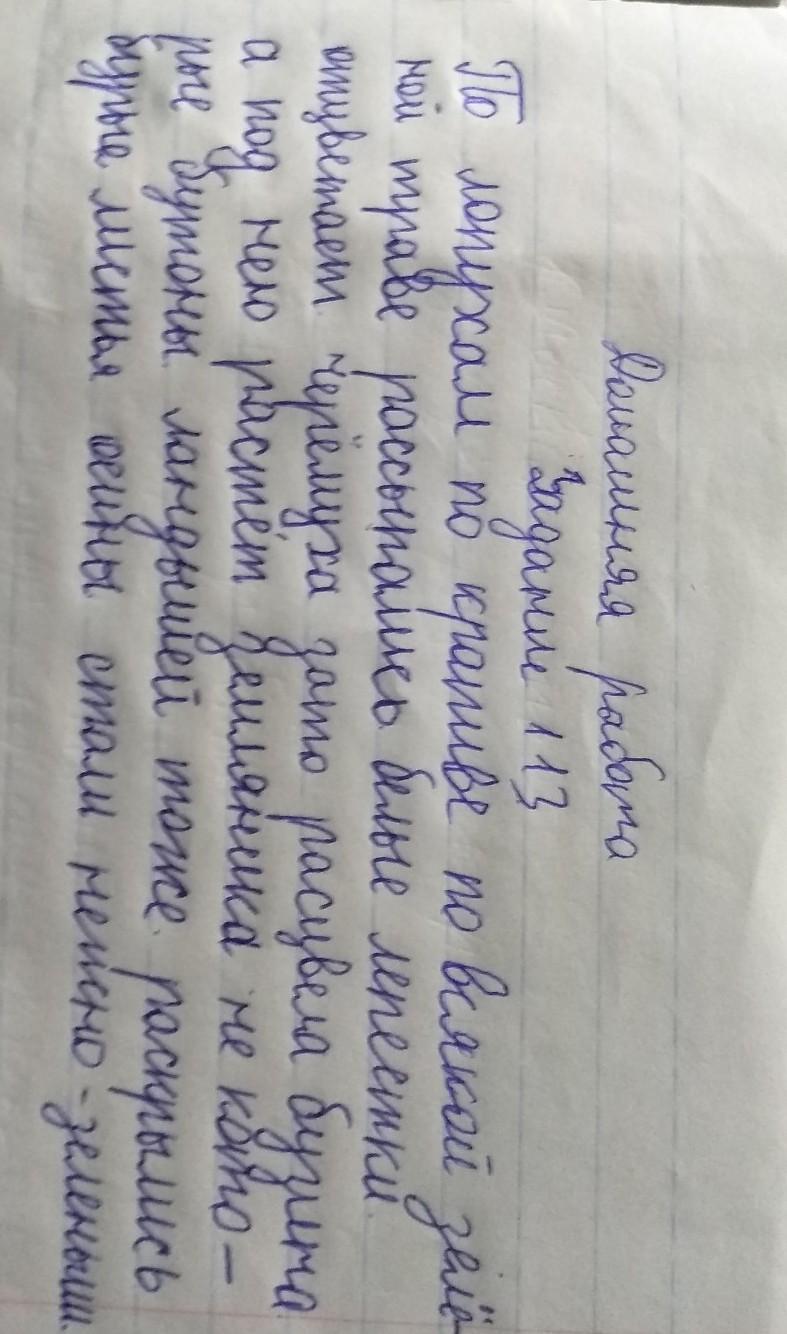 Домашняя работа
Задание 113
По лопухам по крапиве по всякой зелё-
ной траве рассыпались белые лепестки.
отцветает черёмуха зато расцвела бузина
а под нею растёт земляника не кото-
рые бутоны ландышей тоже раскрылись
бурые листья осины стали нежно-зелеными.